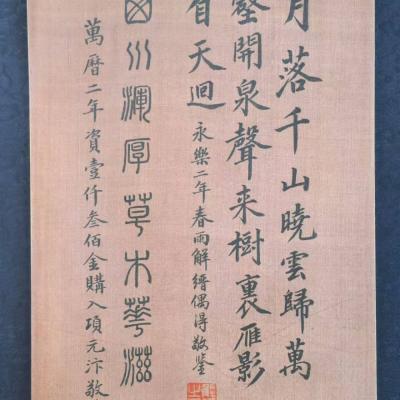 月落千山曉雲歸萬
壑開泉聲来樹裏雁影
自天迴
永樂二年春雨解縉偶得敬鑒
川渾厚草木華滋
萬曆二年資壹仟叁佰金購入項元汴敬